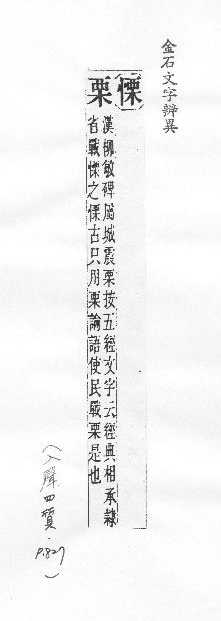 金石文字辨異
慄
栗
漢柳敏碑屬城震栗按五經文字云經典相承隸
省戰慄之慄古只用栗論語使民戰栗是也
(入聲四質·
P.827)